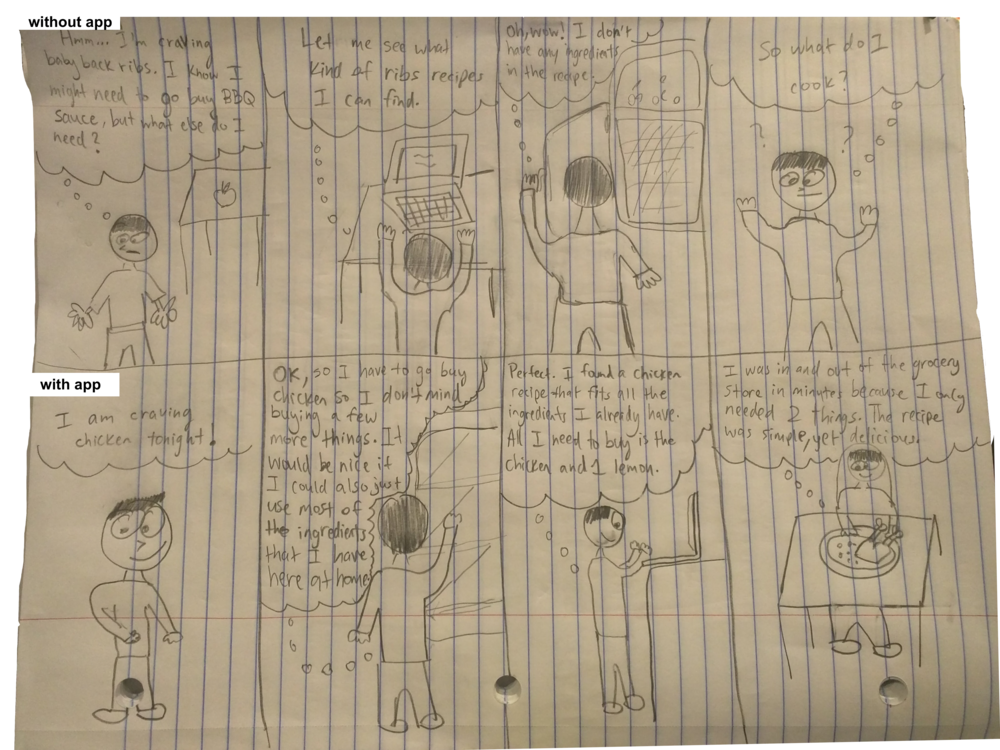 without app
Hmm... I'm craving
baby back ribs. I know I
might need to go buy BBQ
sauce, but what else do I
need?
Let me see what
kind of ribs recipes
I can find.
Oh, wow! I don't
have any ingredients
in the recipe.
So what do I
cook?
? ?
with app
I am craving
chicken tonight.
OK, so I have to go buy
chicken so I don't mind
buying a few
more things. It
would be nice if
I could also just
use most of
the ingredients
that I have
here at home
Perfect. I found a chicken
recipe that fits all the
ingredients I already have.
All I need to buy is the
chicken and 1 lemon.
I was in and out of the grocery
store in minutes because I only
needed 2 things. The recipe
was simple, yet delicious.